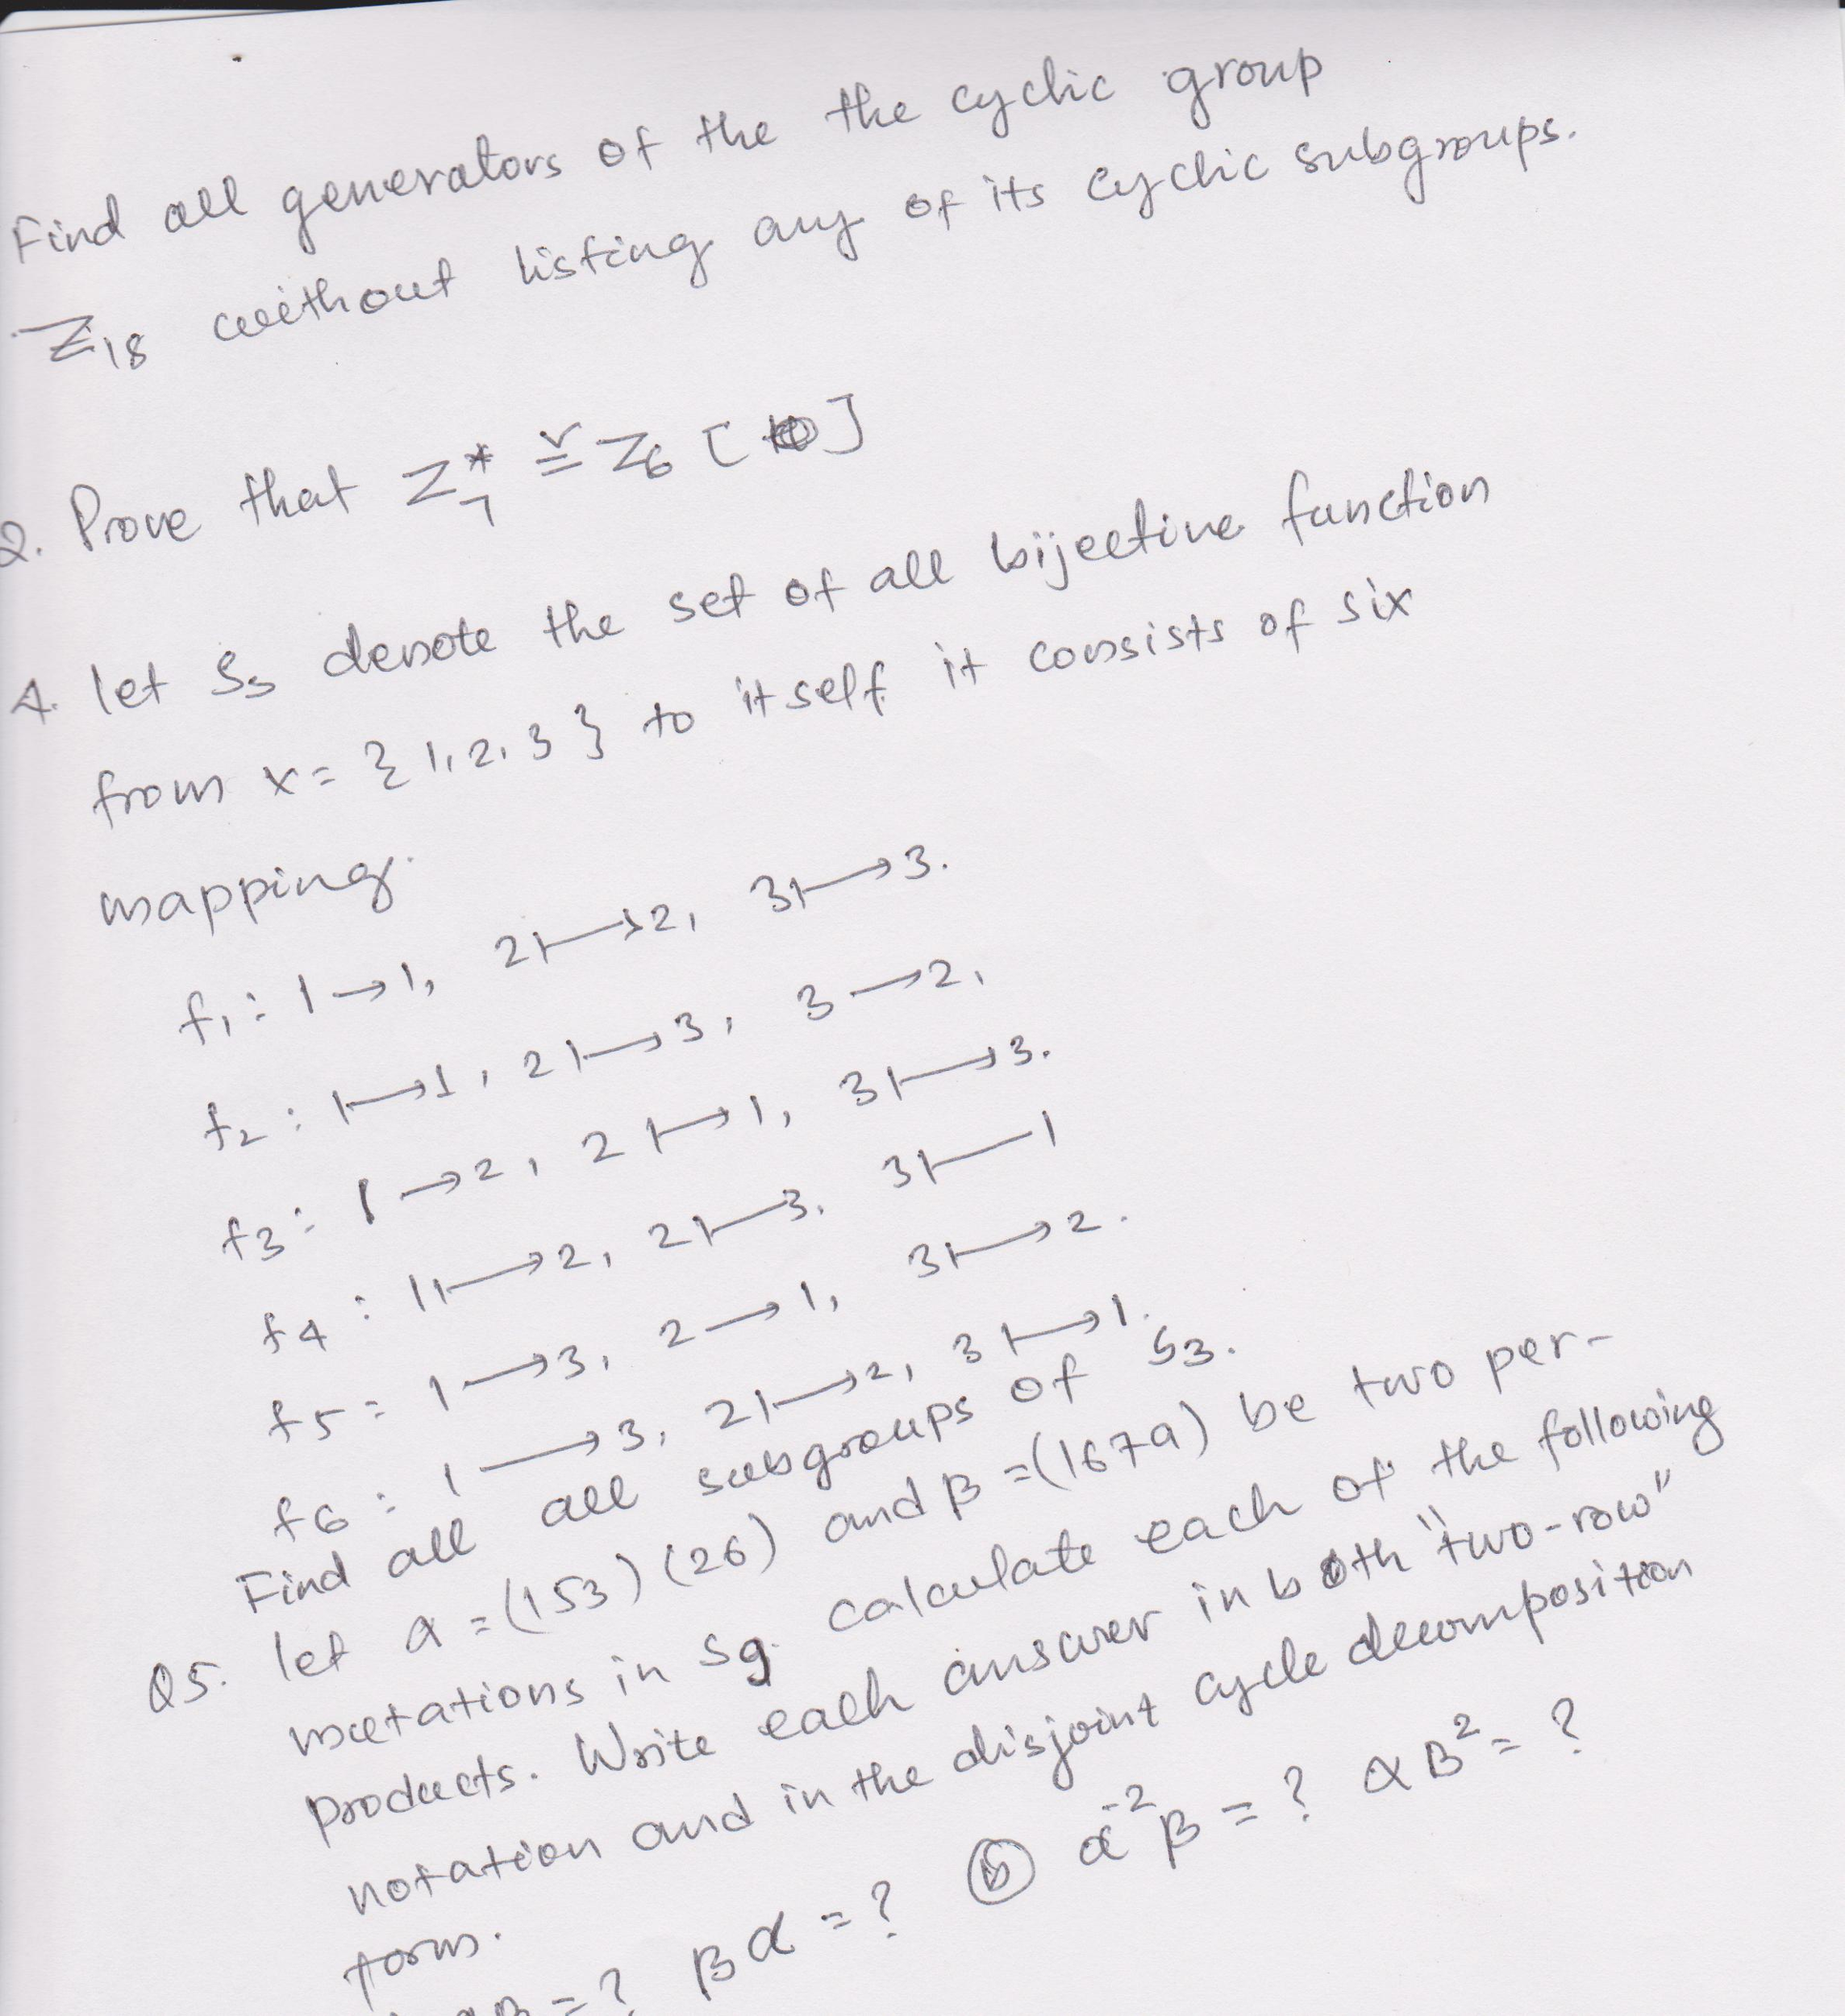 Find all generators of the the cyclic group
Z₁₈ without listing any of its cyclic subgroups.
2. Prove that Z₇* ≅ Z₆ [ ]
4. let S₃ denote the set of all bijective function
from x = { 1, 2, 3 } to itself it consists of six
mapping.
f₁ : 1 → 1, 2 ↦ 2, 3 ↦ 3.
f₂ : 1 ↦ 1, 2 ↦ 3, 3 → 2,
f₃ : 1 → 2, 2 ↦ 1, 3 ↦ 3.
f₄ : 1 ↦ 2, 2 ↦ 3. 3 ↦ 1
f₅ = 1 ↦ 3, 2 → 1, 3 ↦ 2.
f₆ : 1 → 3, 2 ↦ 2, 3 ↦ 1.
Find all all subgroups of S₃.
Q5. let α = (153) (26) and β = (1679) be two per-
mutations in S₉. calculate each of the following
products. Write each answer in both "two-row"
notation and in the disjoint cycle decomposition
form.
αβ = ? βα = ? ⓑ α⁻²β = ? αβ² = ?